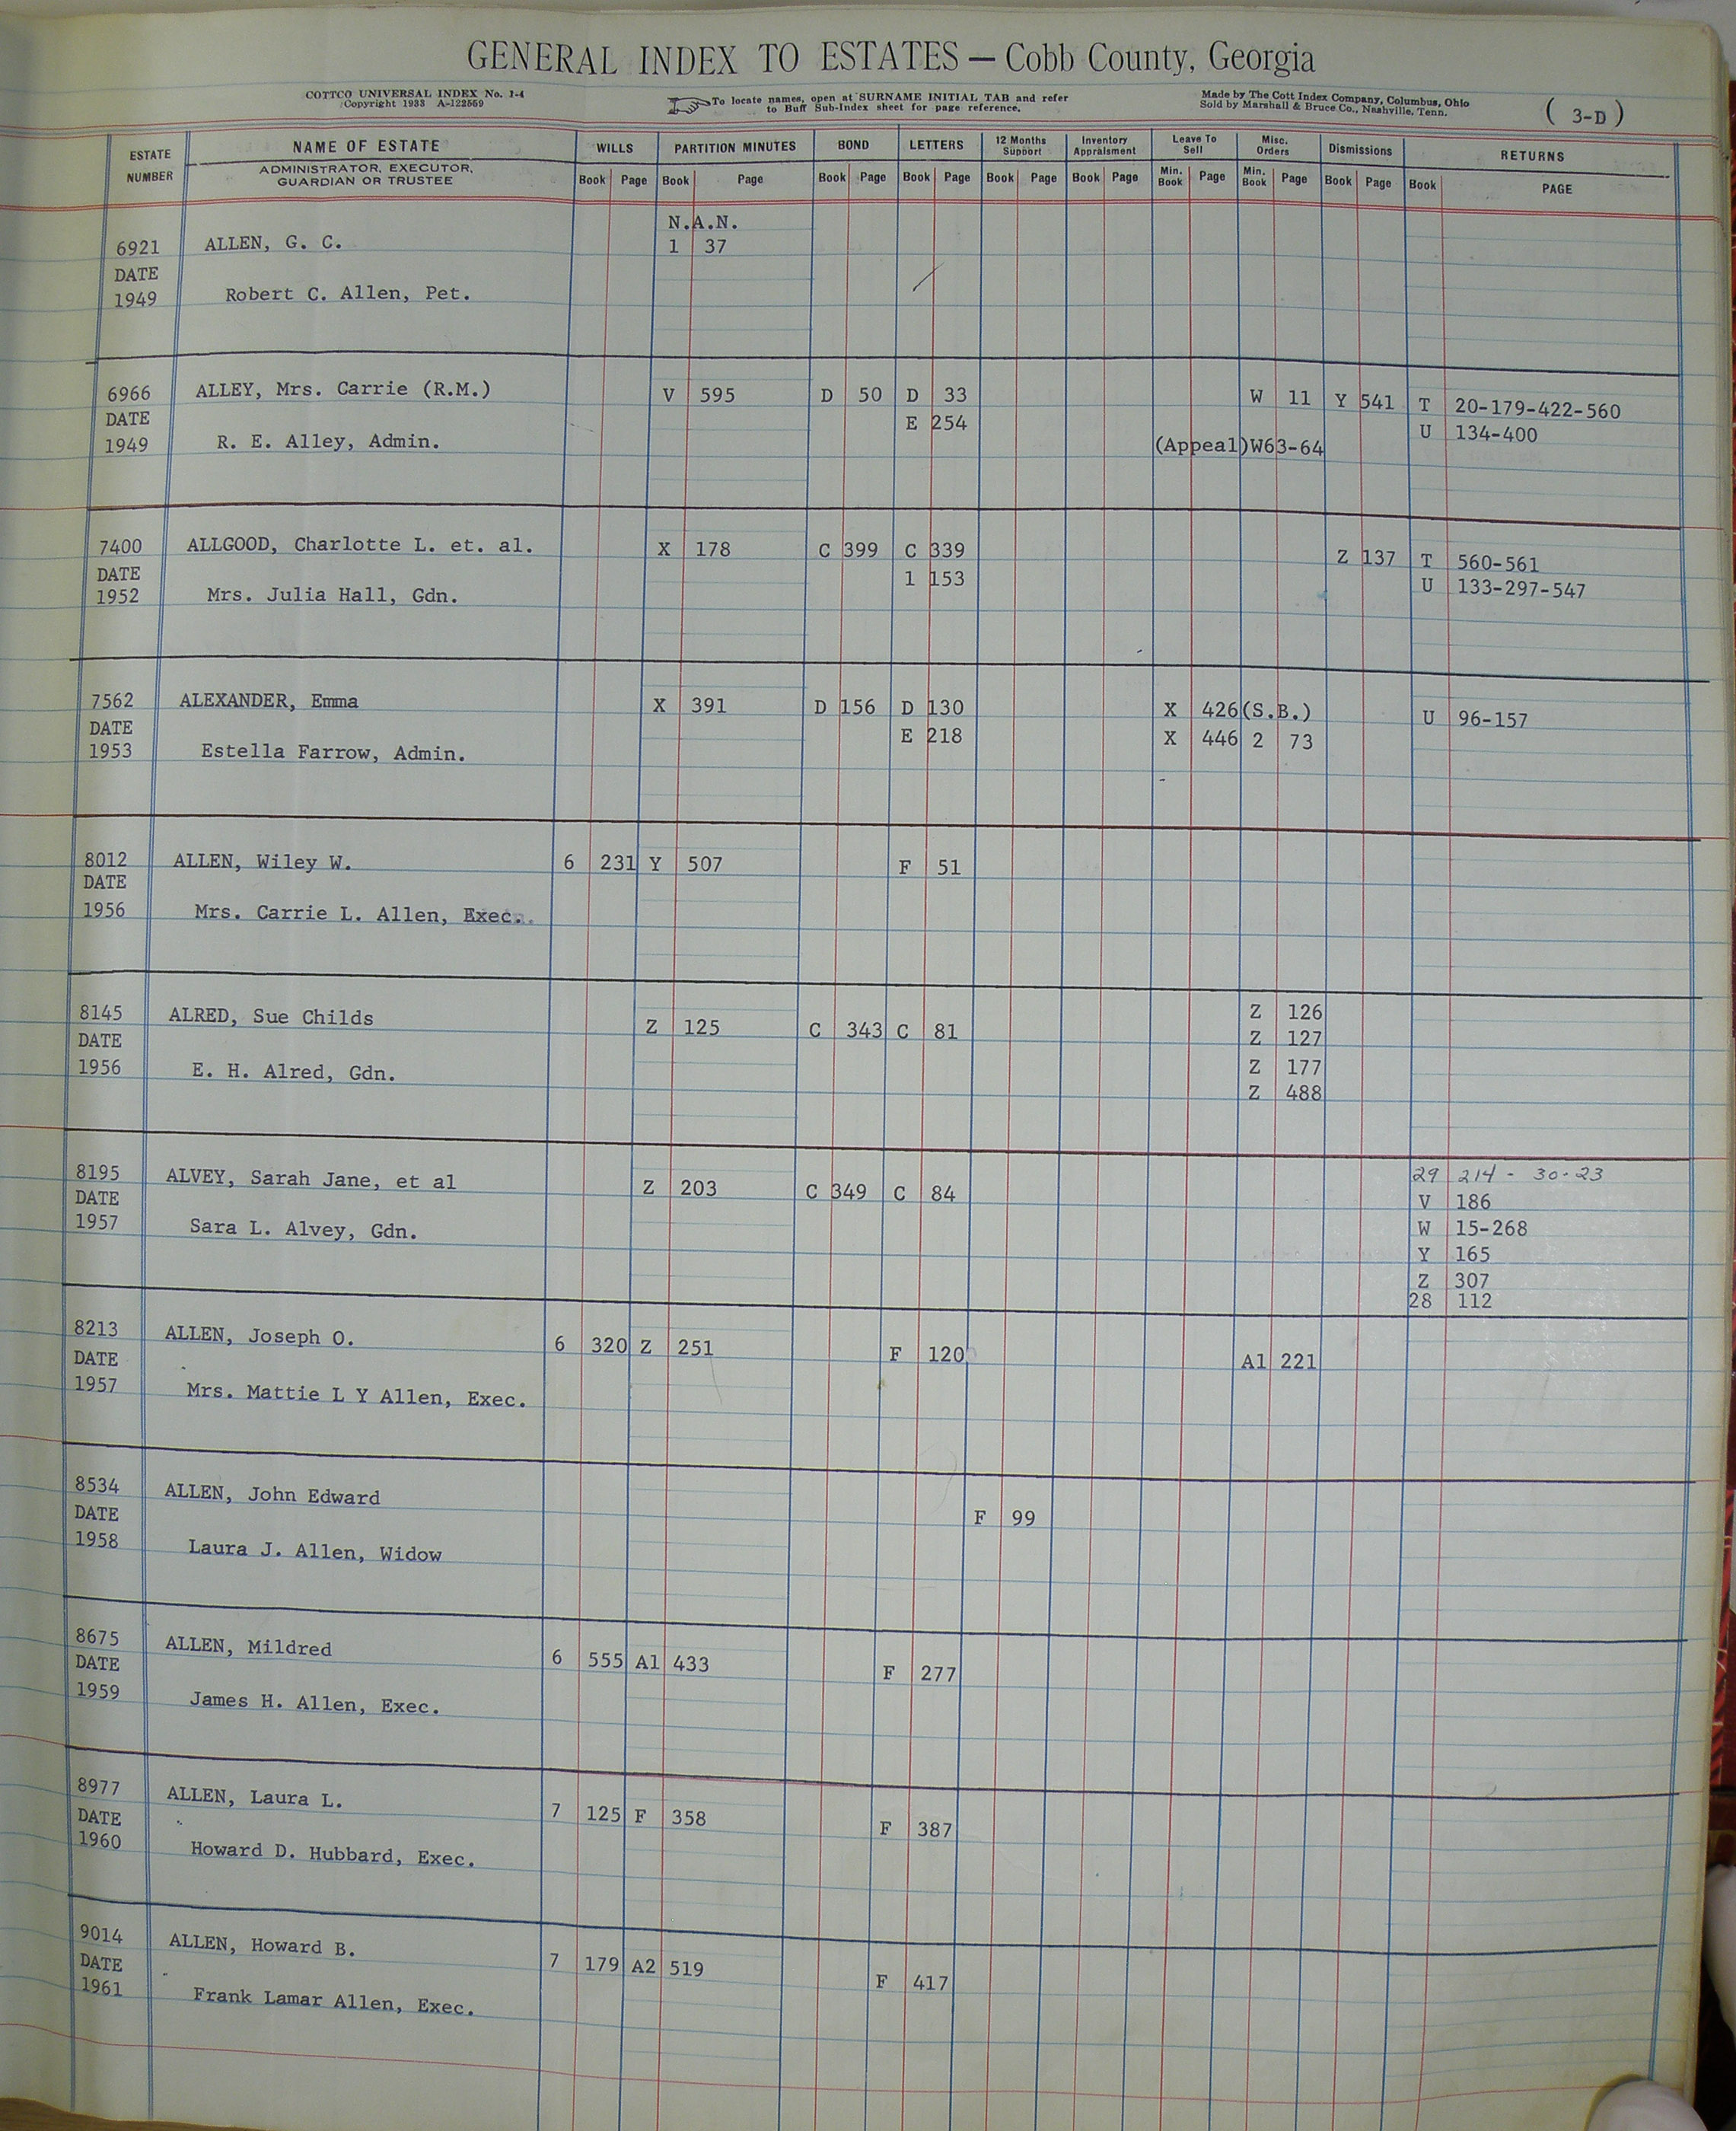 GENERAL INDEX TO ESTATES — Cobb County, Georgia
COTTCO UNIVERSAL INDEX No. 1-4
Copyright 1933 A-122569
To locate names, open at SURNAME INITIAL TAB and refer
to Buff Sub-Index sheet for page reference.
Made by The Cott Index Company, Columbus, Ohio
Sold by Marshall & Bruce Co., Nashville, Tenn.
( 3-D )
ESTATE NUMBER
NAME OF ESTATE
ADMINISTRATOR, EXECUTOR,
GUARDIAN OR TRUSTEE
WILLS PARTITION MINUTES BOND LETTERS 12 Months Support Inventory Appraisment Leave To Sell Misc. Orders Dismissions RETURNS
Book Page Book Page Book Page Book Page Book Page Book Page Min. Book Page Min. Book Page Book Page Book PAGE
N.A.N.
6921 ALLEN, G. C. 1 37
DATE
1949 Robert C. Allen, Pet.
6966 ALLEY, Mrs. Carrie (R.M.) V 595 D 50 D 33 W 11 Y 541 T 20-179-422-560
DATE E 254 U 134-400
1949 R. E. Alley, Admin. (Appeal)W63-64
7400 ALLGOOD, Charlotte L. et. al. X 178 C 399 C 339 Z 137 T 560-561
DATE 1 153 U 133-297-547
1952 Mrs. Julia Hall, Gdn.
7562 ALEXANDER, Emma X 391 D 156 D 130 X 426(S.B.) U 96-157
DATE E 218 X 446 2 73
1953 Estella Farrow, Admin.
8012 ALLEN, Wiley W. 6 231 Y 507 F 51
DATE
1956 Mrs. Carrie L. Allen, Exec.
8145 ALRED, Sue Childs Z 125 C 343 C 81 Z 126
DATE Z 127
1956 E. H. Alred, Gdn. Z 177
Z 488
8195 ALVEY, Sarah Jane, et al Z 203 C 349 C 84 29 214 - 30-23
DATE V 186
1957 Sara L. Alvey, Gdn. W 15-268
Y 165
Z 307
28 112
8213 ALLEN, Joseph O. 6 320 Z 251 F 120 A1 221
DATE
1957 Mrs. Mattie L Y Allen, Exec.
8534 ALLEN, John Edward F 99
DATE
1958 Laura J. Allen, Widow
8675 ALLEN, Mildred 6 555 A1 433 F 277
DATE
1959 James H. Allen, Exec.
8977 ALLEN, Laura L. 7 125 F 358 F 387
DATE
1960 Howard D. Hubbard, Exec.
9014 ALLEN, Howard B. 7 179 A2 519 F 417
DATE
1961 Frank Lamar Allen, Exec.